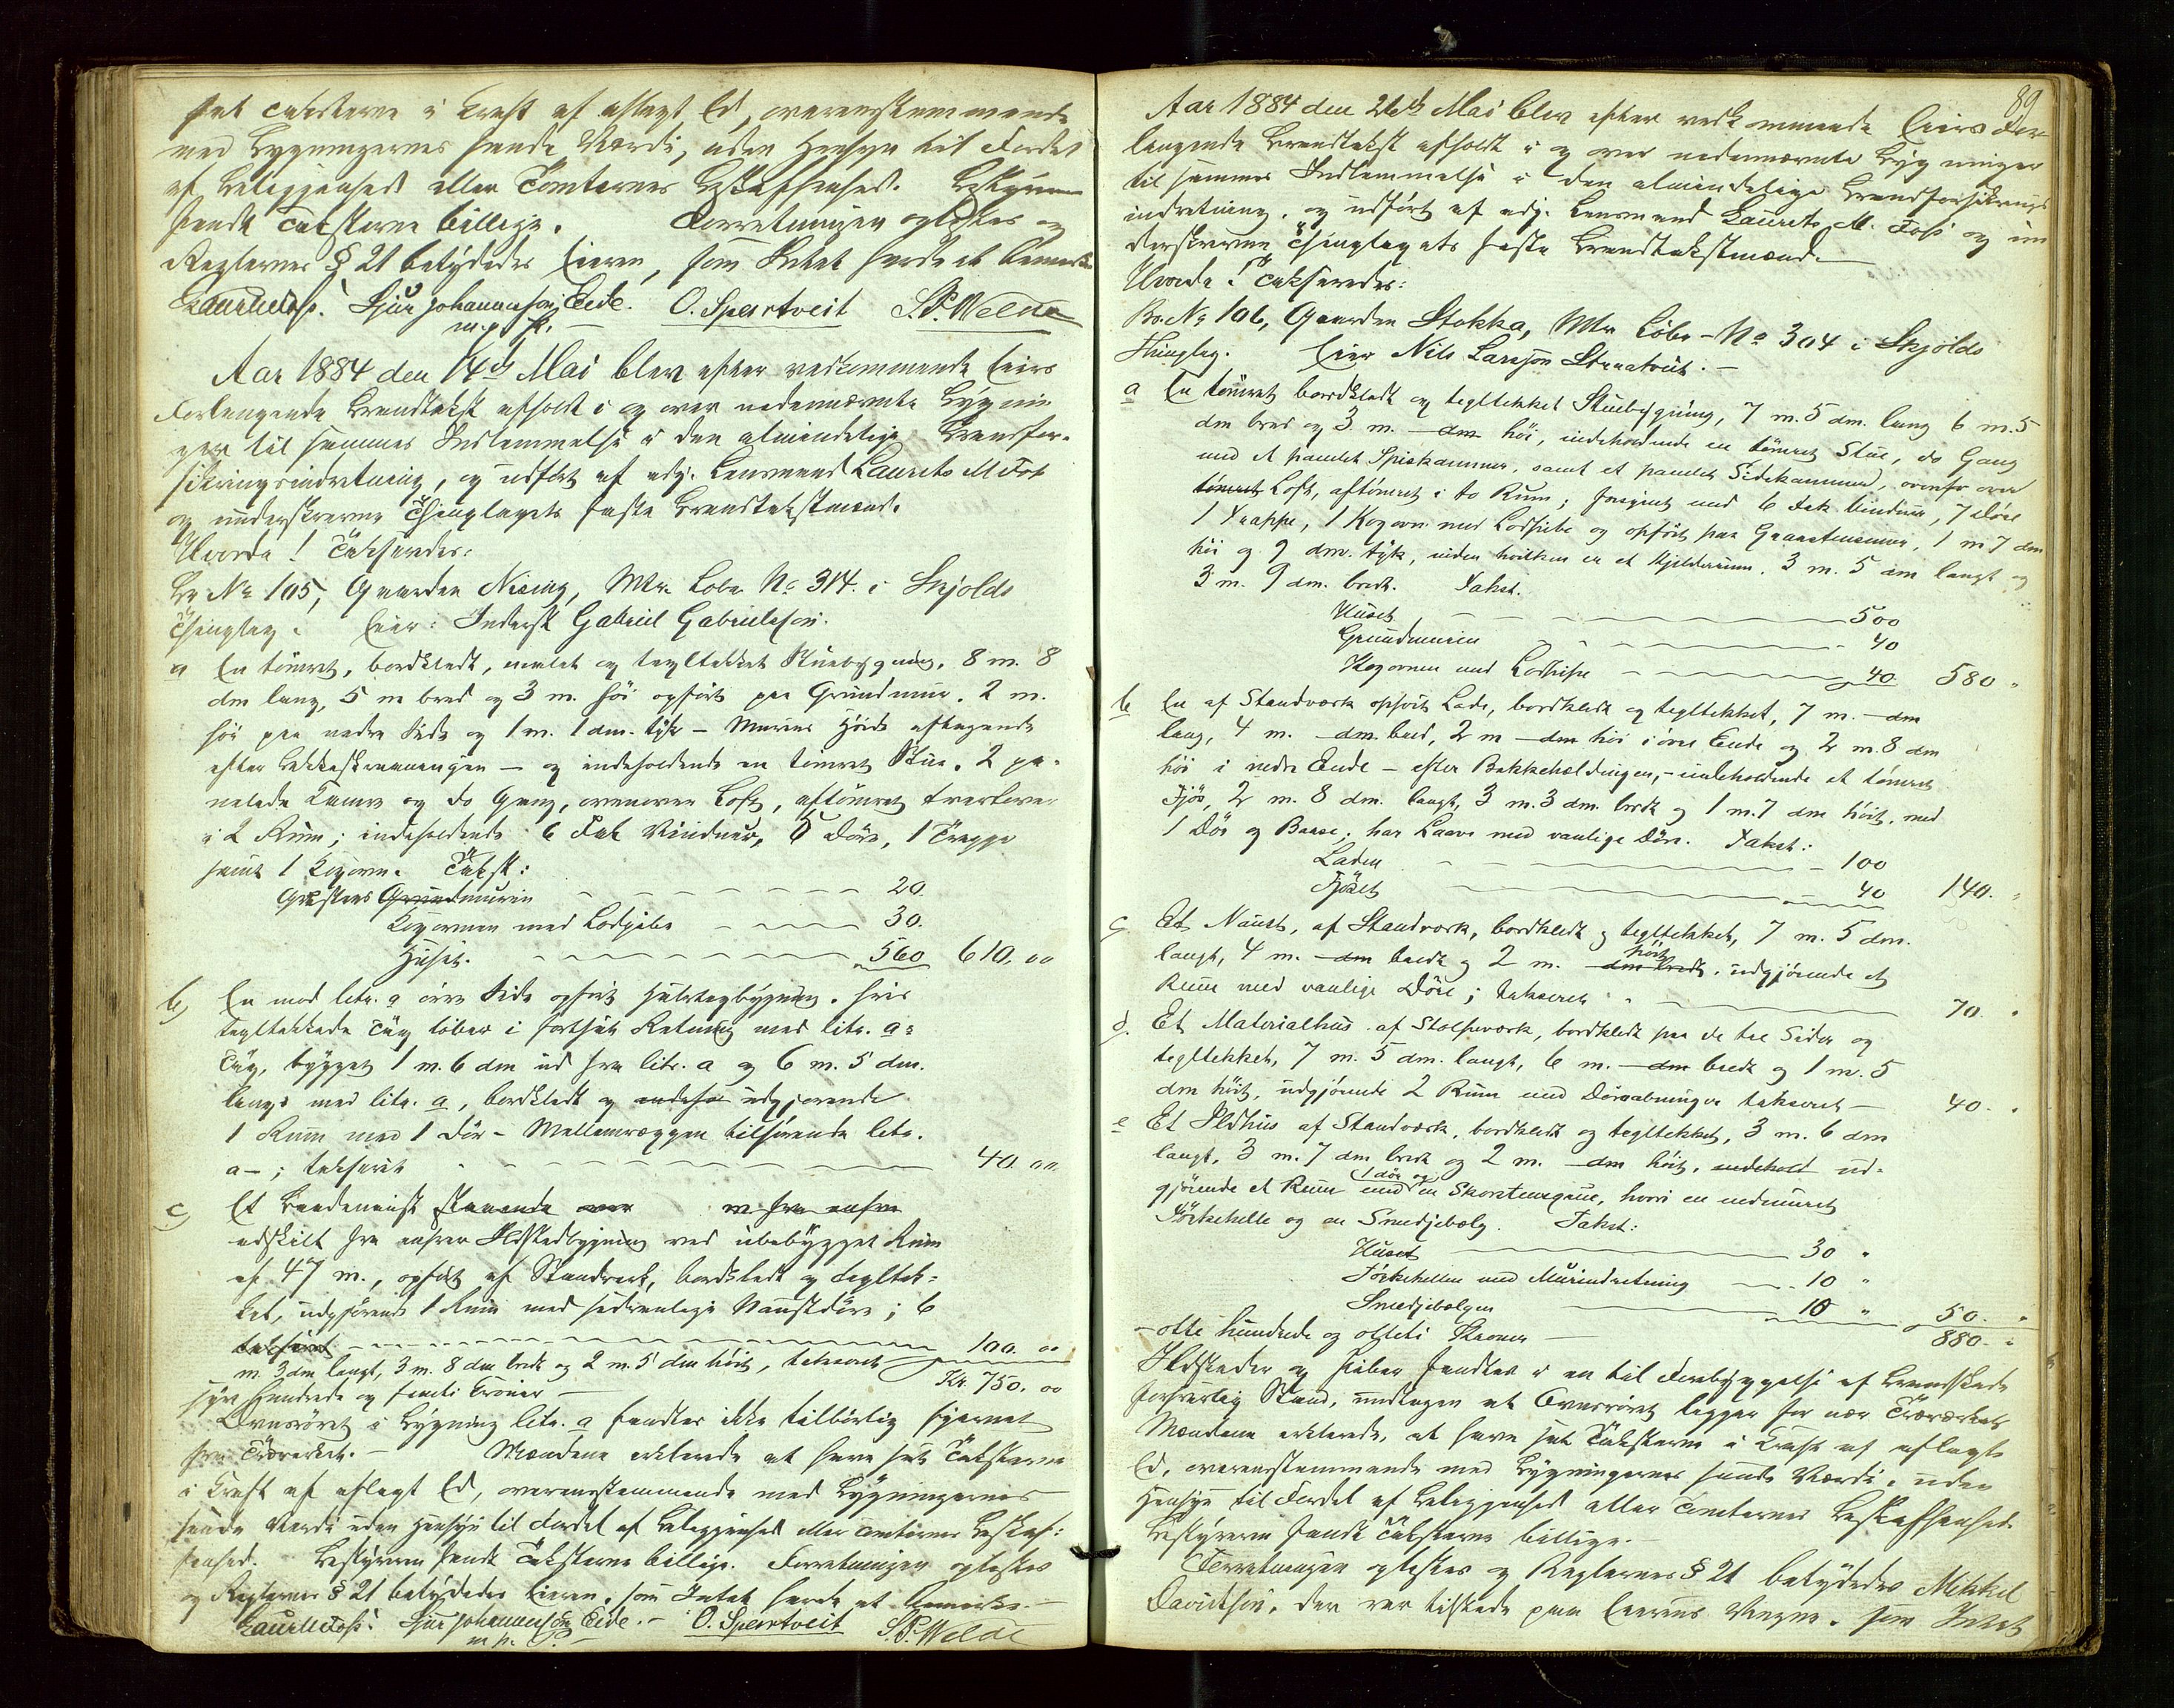 sat Taksterne i Kraft af aflagt Ed, overensstemmende
med Bygningernes sande Værdi, uden Hensyn til Fordel
af Beliggenhed eller Tomternes Beskaffenhed. Bestyreren
fandt Taksterne billige. Forretningen oplæstes og
Reglernes § 21 betydedes Eieren, som Intet havde at bemærke.
Laur. M. Foss. Sjur Johannesson Eide. O. Spartveit S. P. Welde
m. p. P.
Aar 1884 den 14de Mai blev efter vedkommende Eiers
Forlangende Brandtakst afholdt i og over nedennævnte Bygnin
ger til sammes Indlemmelse i den almindelige Brandfor-
sikringsindretning, og udført af adj. Lensmand Laurits M Foss
og underskrevne Thinglagets faste Brandtakstmænd.
Hvorda! Takseredes:
Br No 105, Gaarden Nising, Mtr. Lobe No 314 i Skjolds
Thinglag. Eier: Inderst Gabriel Gabrielsson.
a En tømret, bordklædt, malet og tegltækket Stuebygning, 8 m. 8
dm lang, 5 m bred og 3 m. høi opført paa Grundmur, 2 m.
høi paa nedre Side og 1 m. 1 dm. tyk – Murens Høide aftagende
efter Bakkeskraaningen – og indeholdende en tømret Stue, 2 pa-
nelede Kamre og do Gang, ovenover Loft, aftømret tversover
i 2 Rum; indeholdende 6 Fak Vinduer, 6 Døre, 1 Trappe
samt 1 Kogovn. Takst:
Graastens Grundmuren 20.
Kogovnen med Lodpibe 30.
Huset. 560 610. 00
b) En mod litr. a øvre Side opført Halvtagbygning, hvis
tegltækkede Tag løber i fortsat Retning med litr. a=
Tag, bygget 1 m. 6 dm ud fra litr. a og 6 m. 5 dm.
langs med litr. a, bordklædt og udgjørende
1 Rum med 1 Dør – Mellemvæggen tilhørende litr.
a–; takseret 40. 00.
c) Et Baadenøst staaende
adskilt fra anfører Ildstedbygning ved ubebygget Rum
af 47 m., opført af Standverk, bordklædt og tegltæk-
ket, udgjørende 1 Rum med sædvanlige Naustdøre; 6
takseret 100. 00
m. 3 dm langt, 3 m. 8 dm bredt og 2 m. 5 dm høit, takseret Kr. 750. 00
syv Hundrede og femti Kroner –
Ovnsrøret i Bygning litr. a fandtes ikke tilbørlig fjernet
fra Træverket. – Mændene erklærede at have sat Taksterne
i Kraft af aflagt Ed, overensstemmende med Bygningernes
sande Værdi uden Hensyn til Fordel af Beliggenhed eller Tomternes Beskaf:
fenhed. Bestyreren fandt Taksterne billige. Forretningen oplæstes
og Reglernes § 21 betydedes Eieren, som Intet havde at bemærke. –
Laur. M. Foss. Sjur Johannesson Eide. – O. Spartveit S. P. Welde
m p. P.
89
Aar 1884 den 26de Mai blev efter vedkommende Eiers For-
langende Brandtakst afholdt i og over nedennævnte Bygninger
til sammes Indlemmelse i den almindelige Brandforsikrings
indretning, og udført af adj. Lensmand Laurits M. Foss og un
derskrevne Thinglagets faste Brandtakstmænd. –
Hvorda! Takseredes:
Br. No 106, Gaarden Stokka, Mtr Løbe-No 304 i Skjolds
Thinglag. Eier Nils Larsson Straatveit. –
a En tømret bordklædt og tegltekket Stuebygning, 7 m. 5 dm. lang 6 m. 5
dm bred og 3 m. – dm høi, indeholdende en tømret Stue, do Gang
med et panelet Spiskammer, samt et panelet Sidekammer, ovenfor over
tømret Loft, aftømret i to Rum; forsynet med 6 Fak Vinduer, 7 Døre
1 Trappe, 1 Kogovn med Lodpibe og opført paa Graastensmur, 1 m 7 dm
høi og 9 dm. tyk, inden hvilken er et Kjelderrum. 3 m. 5 dm langt og
3 m. 9 dm. bredt. Takst.
Huset 500
Grundmuren 40
Kogovnen med Lodpibe 40 580 "
b En af Standværk opført Lade, bordklædt og tegltekket, 7 m. – dm
lang, 4 m. – dm. bred, 2 m – dm høi i øvre Ende og 2 m. 8 dm
høi i nedre Ende – efter Bakkehældingen, – indeholdende et tømret
Fjøs, 2 m. 8 dm. langt, 3 m. 3 dm. bredt og 1 m. 7 dm høit, med
1 Dør og Baase; har Laave med vanlige Døre. Takst:
Laden 100
Fjøset 40 140. "
c Et Naust, af Standværk, bordklædt og tegltekket, 7 m. 5 dm.
langt, 4 m. – dm bredt og 2 m. – dm bredt høit, udgjørende et
Rum med vanlige Døre; takseret 70. "
d. Et Materialhus af Stolpeværk, bordklædt paa de tre Sider og
tegltekket, 7 m. 5 dm. langt, 6 m. – dm bredt og 1 m. 5
dm høit, udgjørende 2 Rum med Døraabninger takseret – 40. "
e Et Ildhus af Standværk, bordklædt og tegltekket, 3 m. 6 dm
langt, 3 m. 7 dm bredt og 2 m. – dm høit, indehold ud-
gjørende et Rum med 1 dør og en Skorstensgrue, hvori en indmuret
Tørkehelle og en Smedjebælg. Takst:
Huset 30 "
Tørkehellen med Murindretning 10 "
Smedjebælgen 10 " 50. "
– otte hundrede og otteti Kroner – 880. "
Ildsteder og Piber fandtes i en til Forebyggelse af Brandskade
forsvarlig Stand, undtagen at Ovnsrøret ligger for nær Træværket
Mændene erklærede, at have sat Taksterne i Kraft af aflagte
Ed, overensstemmende med Bygningernes sande Værdi, uden
Hensyn til Fordel af Beliggenhed eller Tomternes Beskaffenhed.
Bestyreren fandt Taksterne billige. –
Forretningen oplæstes og Reglernes § 21 betydedes Mikkel
Davidsen, der var tilstede paa Eierens Vegne, som Intet